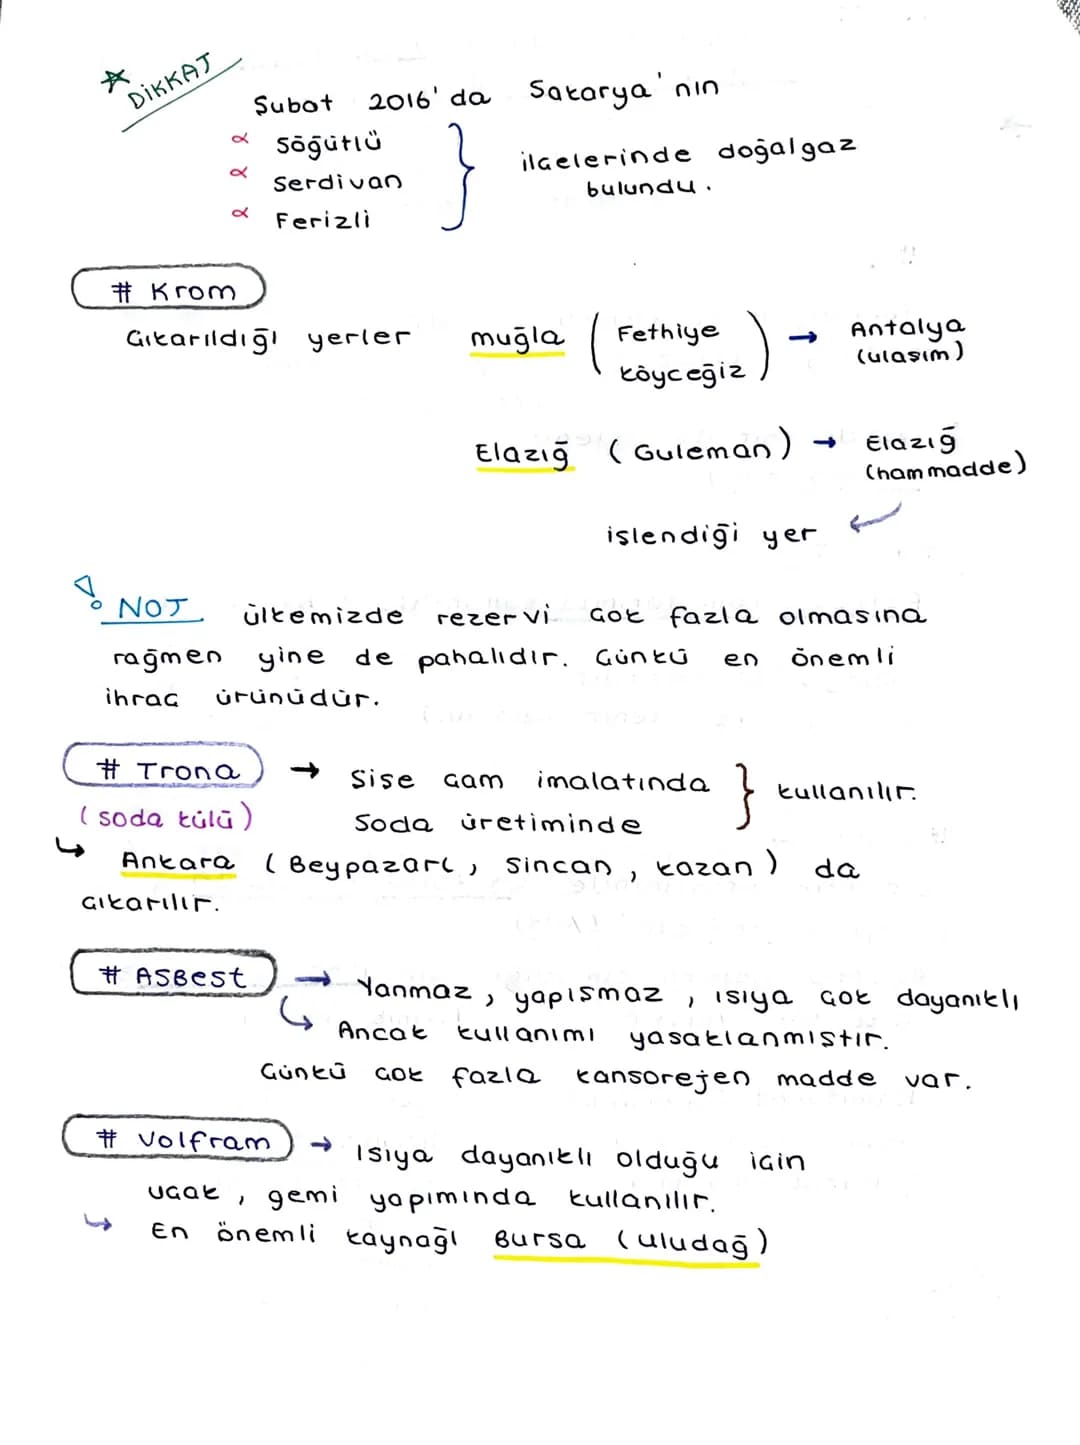 DİKKAT
Şubat 2016'da Sakarya'nın
Söğütlü
Serdivan
Ferizli
ilçelerinde doğalgaz
bulundu.
# Krom
Çıkarıldığı yerler muğla ( Fethiye köyceğiz ) → Antalya
(ulaşım)
Elazığ (Guleman) → Elazığ
(hammadde)
işlendiği yer
NOT ülkemizde rezervi çok fazla olmasına
rağmen yine de pahalıdır. Çünkü en önemli
ihraç ürünüdür.
# Trona → Şişe cam imalatında } kullanılır.
(soda külü) Soda üretiminde
↳ Ankara (Beypazarı, Sincan, kazan) da
çıkarılır.
# Asbest → Yanmaz, yapışmaz, ısıya çok dayanıklı
↳ Ancak kullanımı yasaklanmıştır.
Çünkü çok fazla kansorejen madde var.
# Volfram → Isıya dayanıklı olduğu için
uçak, gemi yapımında kullanılır.
↳ En önemli kaynağı Bursa (uludağ)